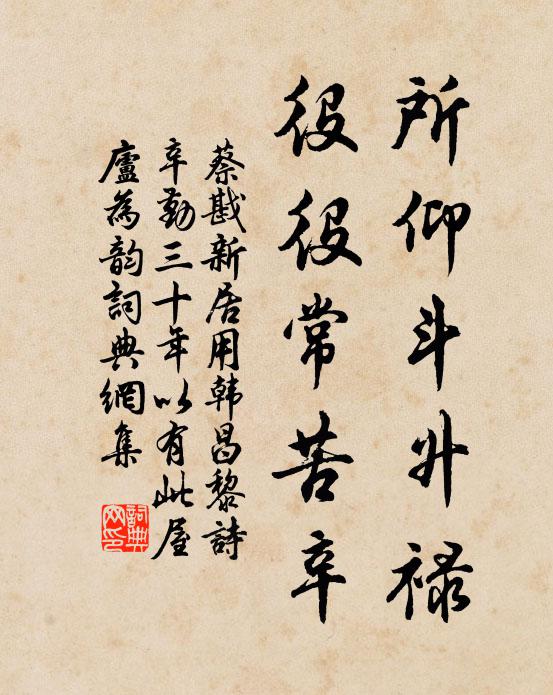 所仰斗升禄
役役常苦辛
蔡戡新居用韩昌黎詩
辛勤三十年以有此屋
廬為韵詞典網集
詞典
网印